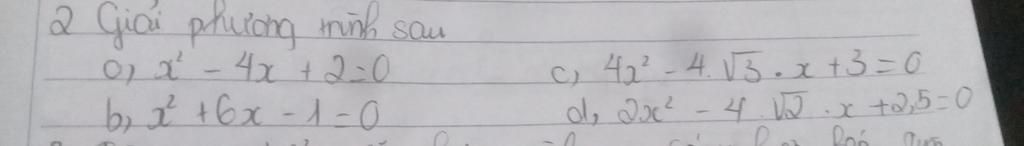 2 Giải phương trình sau
a, x² - 4x + 2 = 0
b, x² + 6x - 1 = 0
c, 4x² - 4.√3.x + 3 = 0
d, 2x² - 4.√2.x + 2,5 = 0